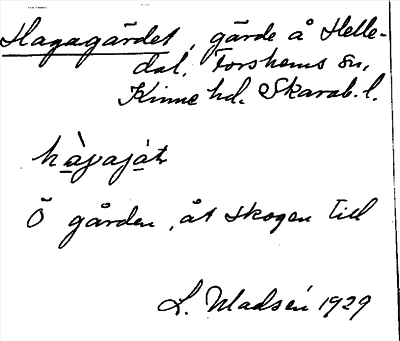 Hagagärdet, gärde å Helle-
dal, Forshems sn,
Kinne hd. Skarab. l.
hàgaját
Ö gården, åt skogen till
L. Madsén 1929